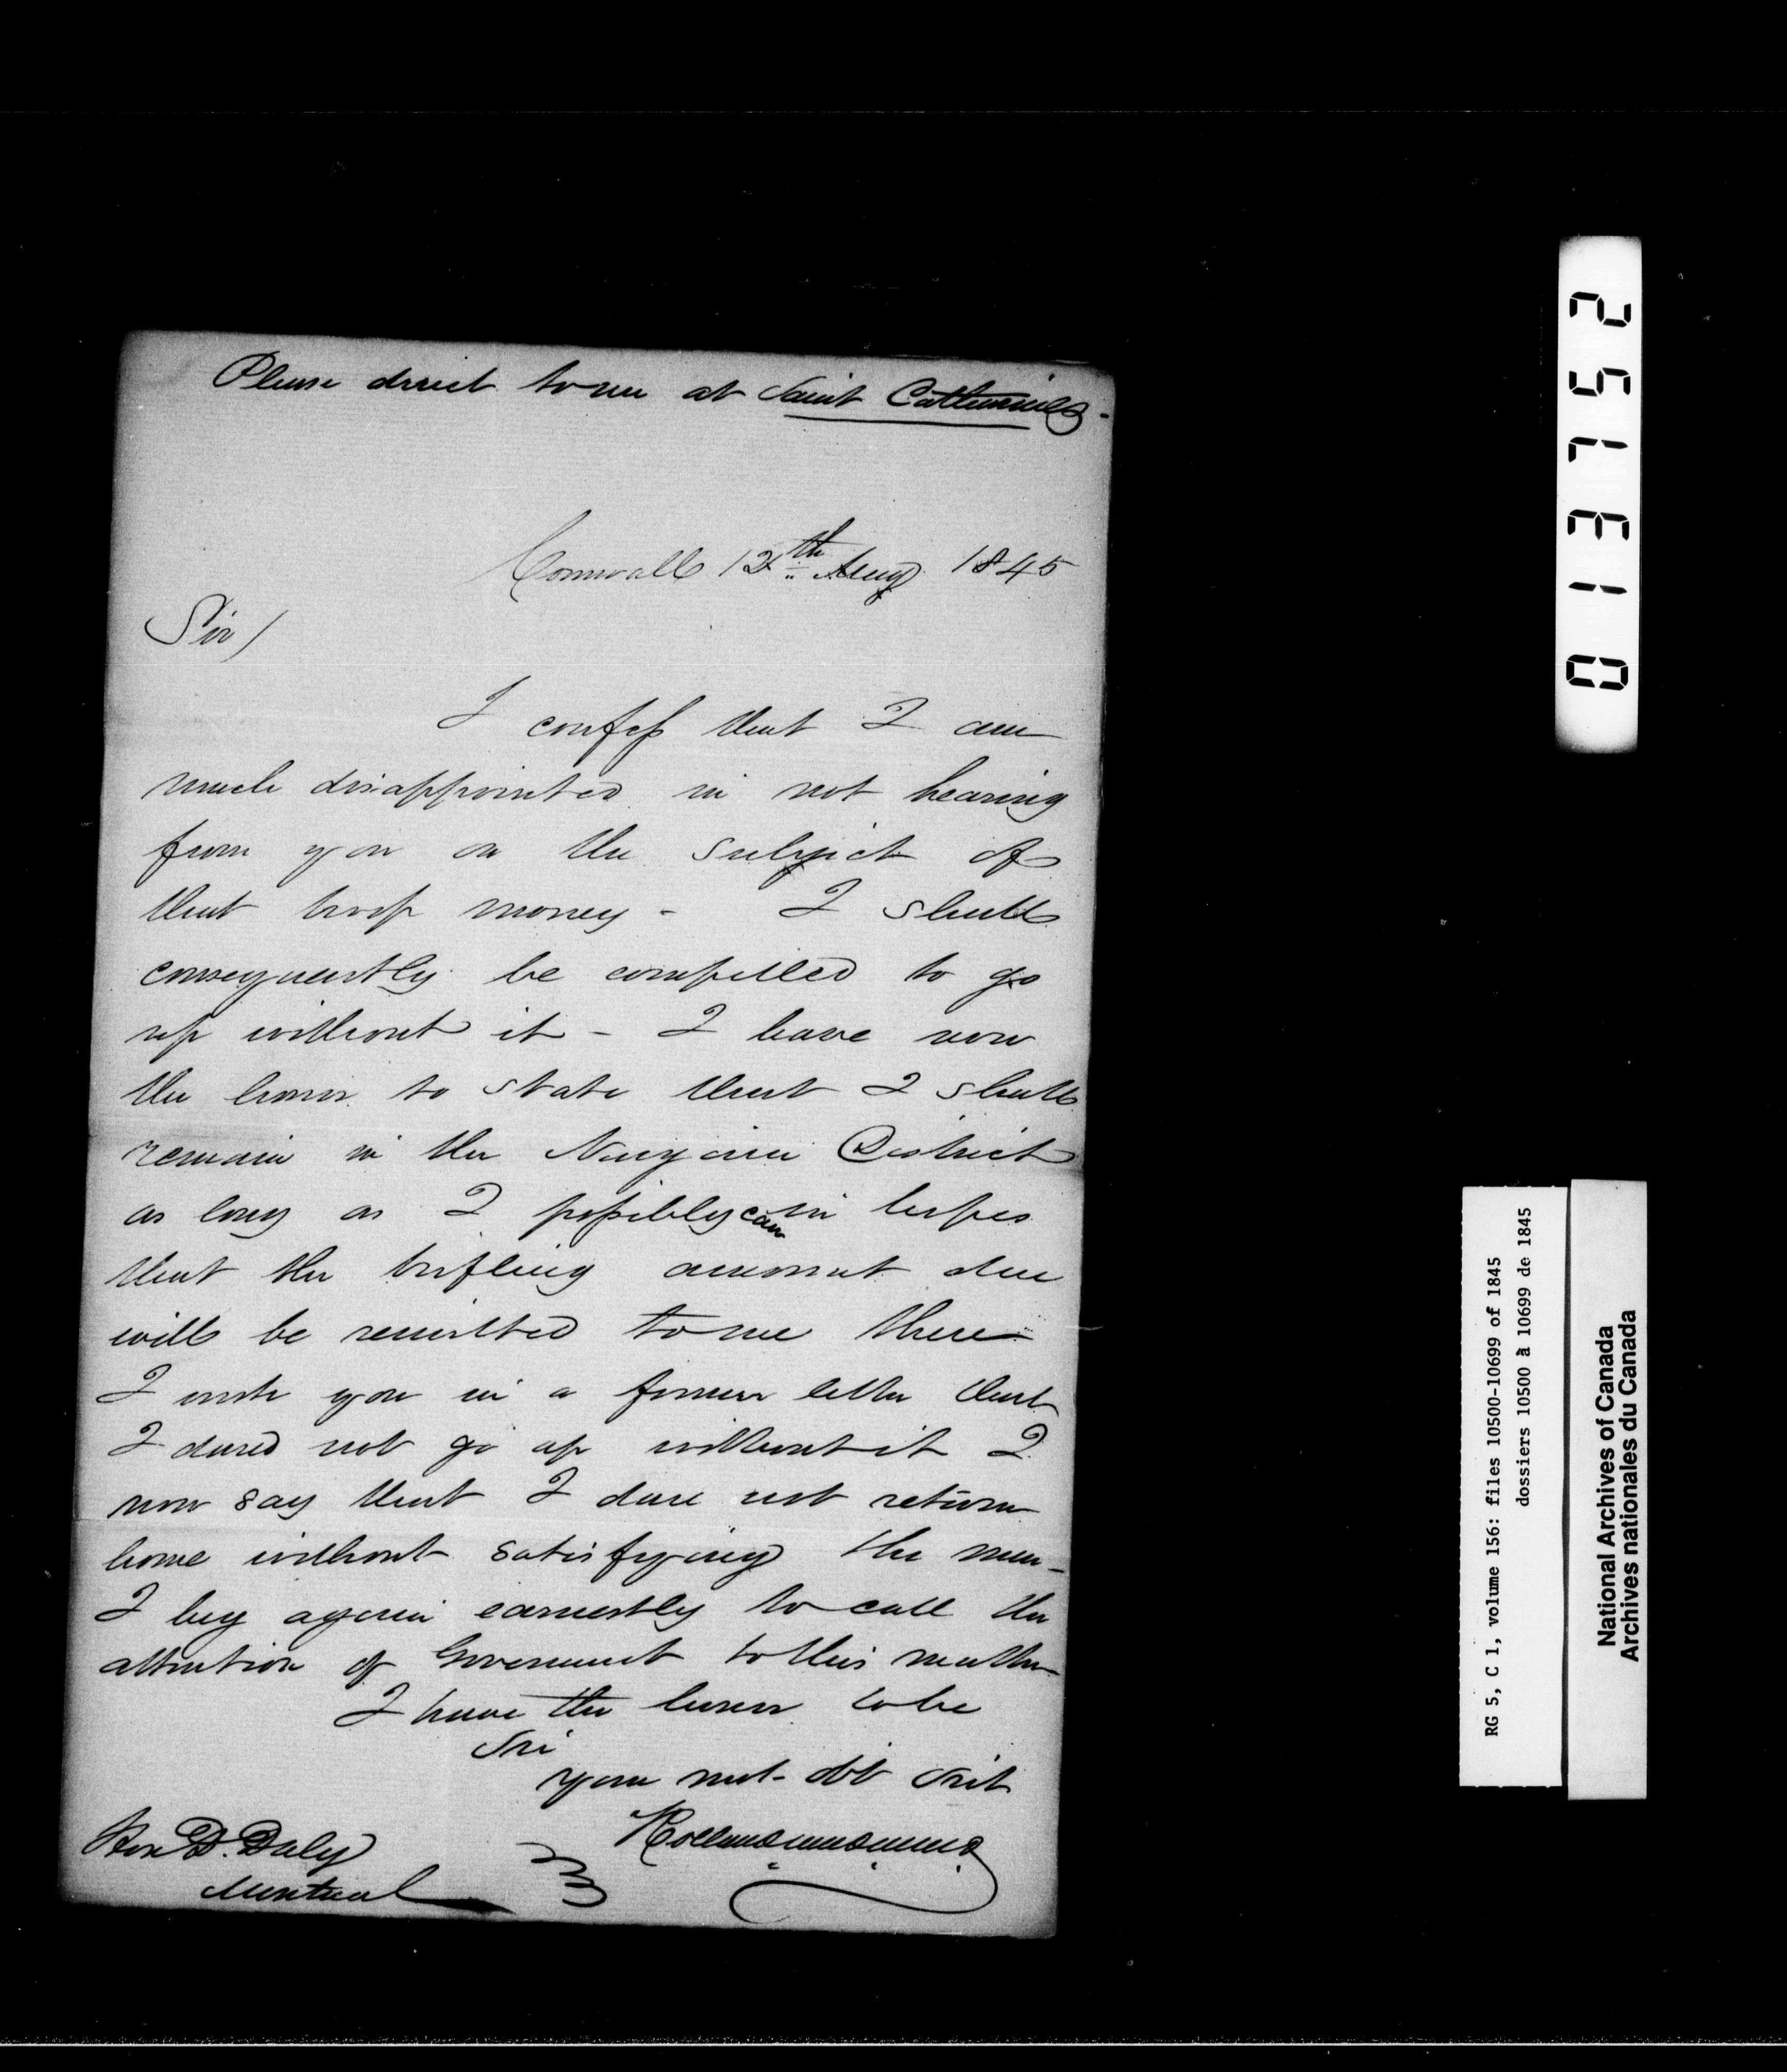 Please direct to me at Saint Catherines -
Cornwall 12th Aug 1845
Sir/
I confess that I am
much disappointed in not hearing
from you on the subject of
that troop money - I shall
consequently be compelled to go
up without it - I have now
the honor to state that I shall
remain in the Niagara District
as long as I possibly can in hopes
that the trifling amount due
will be remitted to me there
I wrote you in a former letter that
I dared not go up without it I
now say that I dare not return
home without satisfying the men -
I beg again earnestly to call the
attention of Government to this matter
I have the honor to be
Sir
your mst. obt Svt
Hon D. Daly
Montreal
013752
RG 5, C 1, volume 156: files 10500-10699 of 1845
dossiers 10500 à 10699 de 1845
National Archives of Canada
Archives nationales du Canada